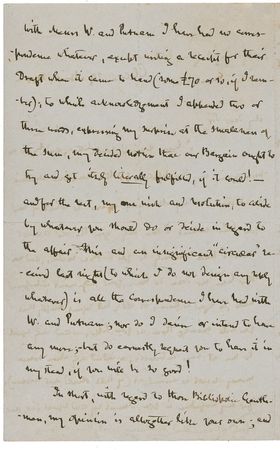 with Messrs W. and Putnam I have had no corres-
-pondence whatever, except writing a receipt for their
Draft when it came to hand (some £70 or so, if I remem-
ber); to which acknowledgement I appended two or
three words, expressing my surprise at the smallness of
the sum, my decided notion that our Bargain ought to
try and get itself literally fulfilled, if it could! –
and for the rest, my one wish and resolution, to abide
by whatever you should do or decide in regard to
the affair. This and an insignificant "circular" re-
ceived last night (to which I do not design any reply
whatever) is all the correspondence I have had with
W. and Putnam; nor do I desire or intend to have
any more; – but do earnestly request you to have it in
my stead, if you will be so good!
In short, with regard to those Bibliopolic Gentle-
men, my opinion is altogether like your own; and